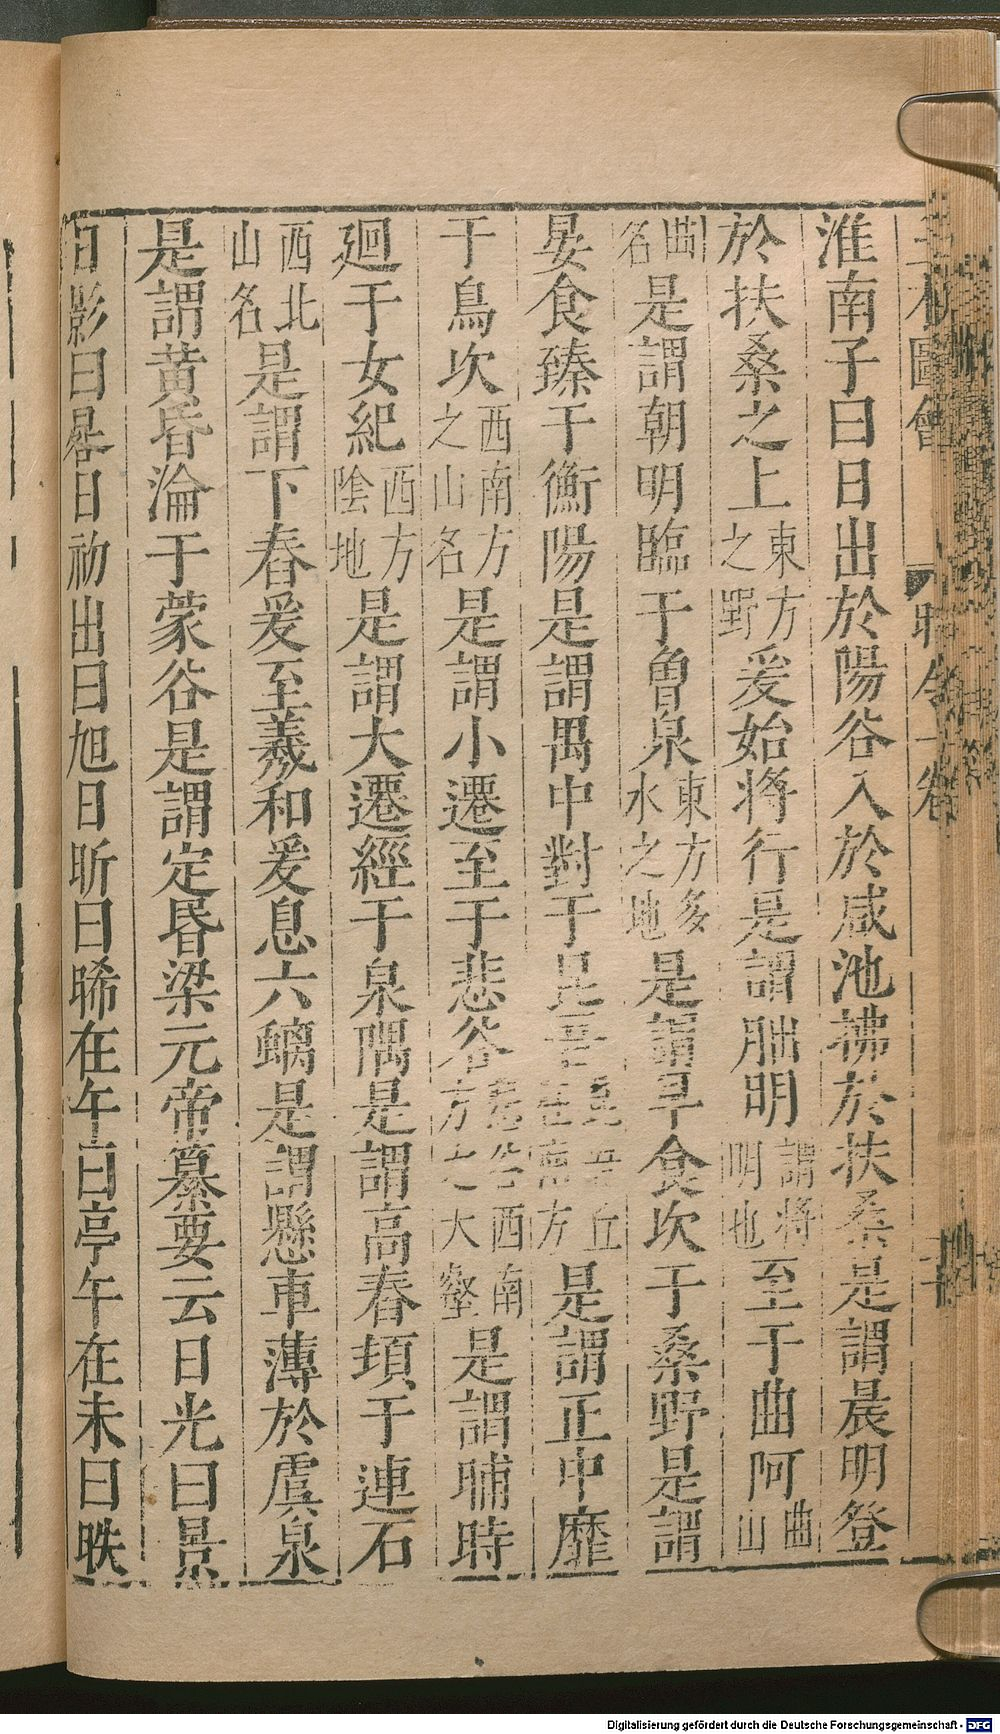 圖會 時令一卷
淮南子曰日出於陽谷入於咸池拂於扶桑是謂晨明登
於扶桑之上東方之野爰始將行是謂朏明謂將明也至于曲阿曲山
曲名是謂朝明臨于曾泉東方多水之地是謂早食次于桑野是謂
晏食臻于衡陽是謂禺中對于昆吾昆吾丘在南方是謂正中靡
于鳥次西南方之山名是謂小遷至于悲谷悲谷西南方之大壑是謂晡時
廻于女紀西方陰地是謂大遷經于泉隅是謂高舂頓于連石
西北山名是謂下舂爰至羲和爰息六螭是謂懸車薄於虞泉
是謂黄昏淪于蒙谷是謂定昏梁元帝纂要云日光曰景
日影曰晷日初出曰旭日昕曰晞在午曰亭午在未曰昳
Digitalisierung gefördert durch die Deutsche Forschungsgemeinschaft - DFG